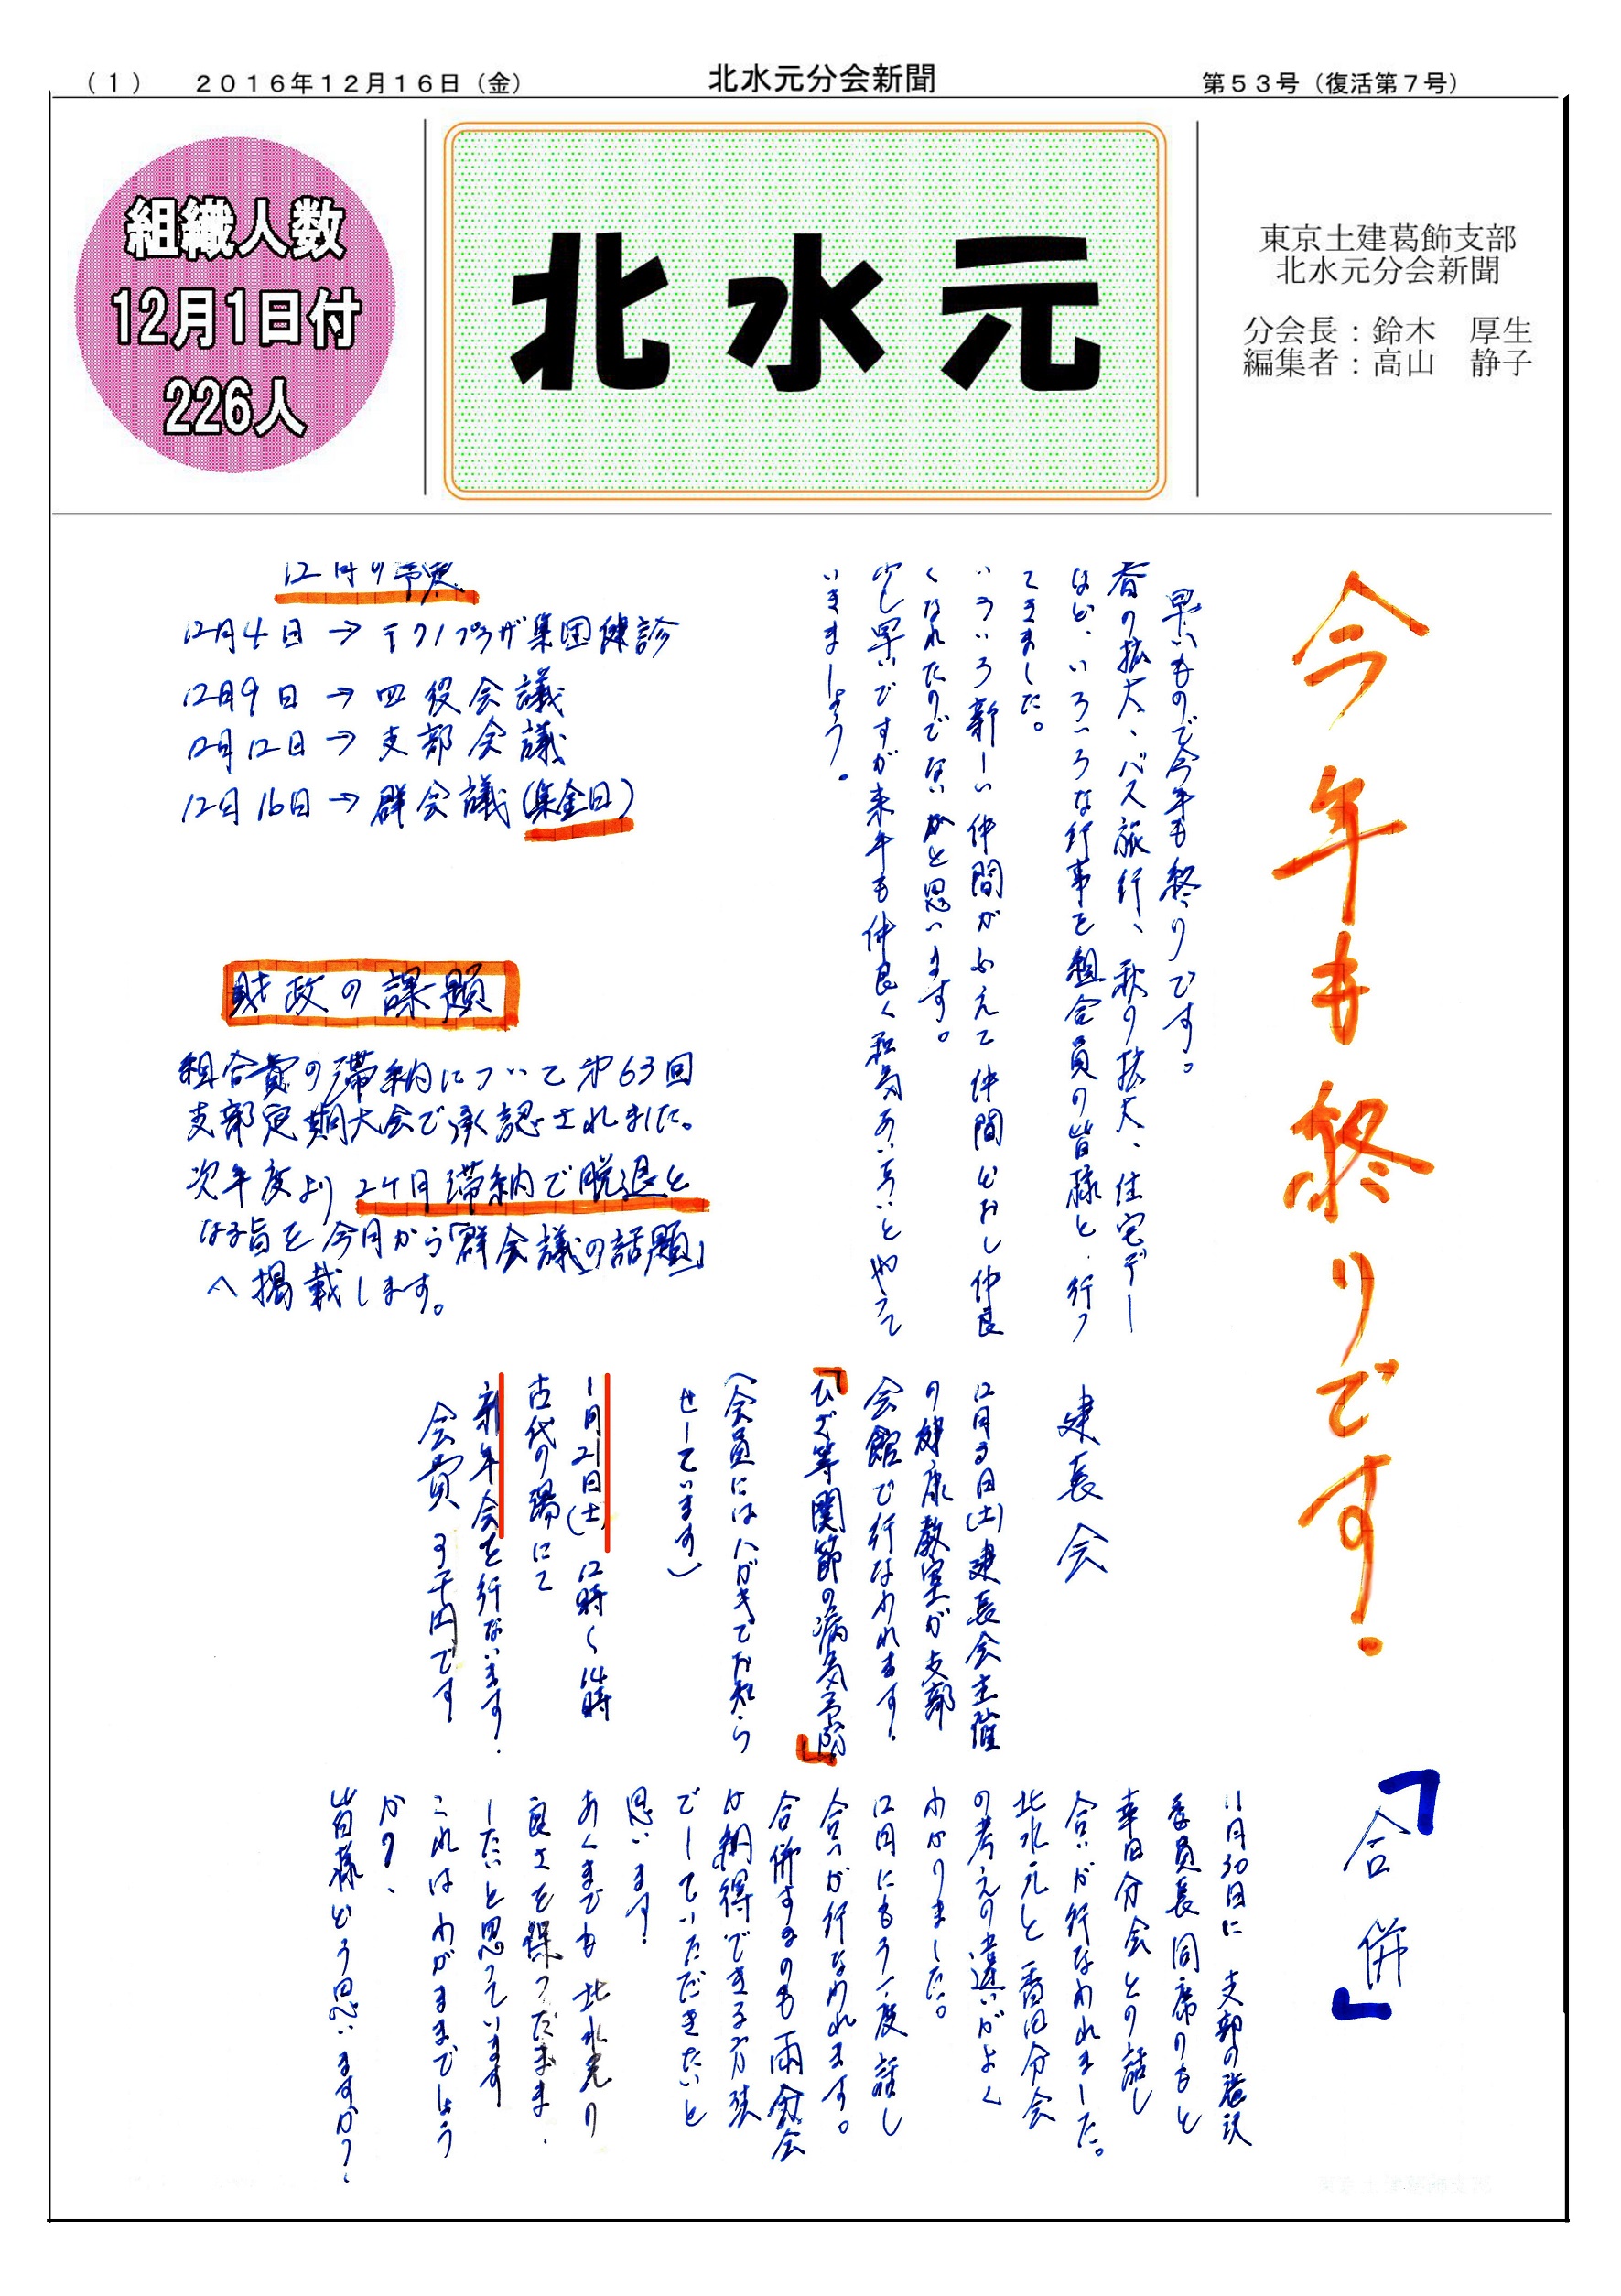 （1）　２０１６年１２月１６日（金）　北水元分会新聞　第５３号（復活第７号）
組織人数
12月1日付
226人
北水元
東京土建葛飾支部
北水元分会新聞
分会長：鈴木　厚生
編集者：高山　静子
今年も終りです.
早いもので今年も終りです。
春の拡大、バス旅行、秋の拡大、住宅デー
など、いろいろな行事を組合員の皆様と、行っ
てきました。
いろいろ新しい仲間がふえて仲間どおし仲良
くなれたのでないかと思います。
少し早いですが来年も仲良く和気あいあいとやって
いきましょう。
12月の予定
12月4日→テクノプラザ集団健診
12月9日→四役会議
12月12日→支部会議
12月16日→群会議(集金日)
財政の課題
組合費の滞納について第63回
支部定期大会で承認されました。
次年度より2ケ月滞納で脱退と
なる旨を今月から「群会議の話題」
へ掲載します。
建長会
12月3日(土)建長会主催
の健康教室が支部
会館で行なわれます.
『ひざ等関節の病気予防』
(会員にはハガキでお知ら
せしています)
1月21日(土)12時〜14時
古代の湯にて
新年会を行ないます.
会費3千円です
「合併」
11月30日に　支部の
委員長同席のもと
幸田分会との話し
合いが行なわれました。
北水元と幸田分会
の考えの違いがよく
わかりました。
12月にもう一度話し
合いが行なわれます。
合併するのも両分会
が納得できる方法
でしていただきたいと
思います.
あくまでも北水元の
良さを保ったまま.
したいと思っています
これはわがままでしょう
か?、
皆様どう思いますか?.